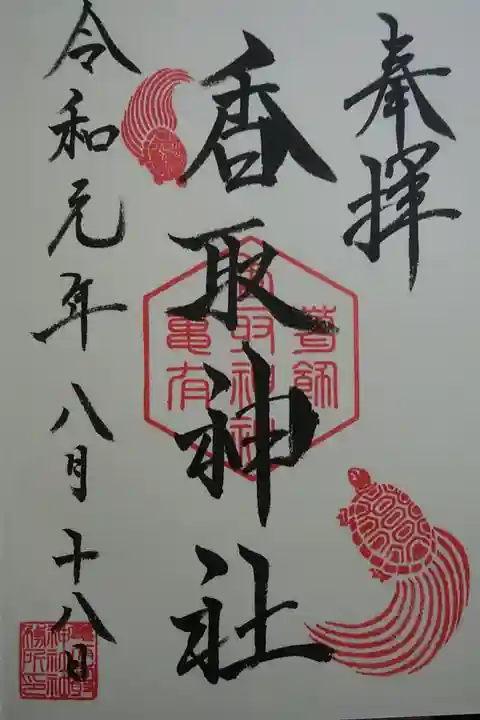 奉拝
葛飾
香取神社
亀有
香取神社
令和元年八月十八日